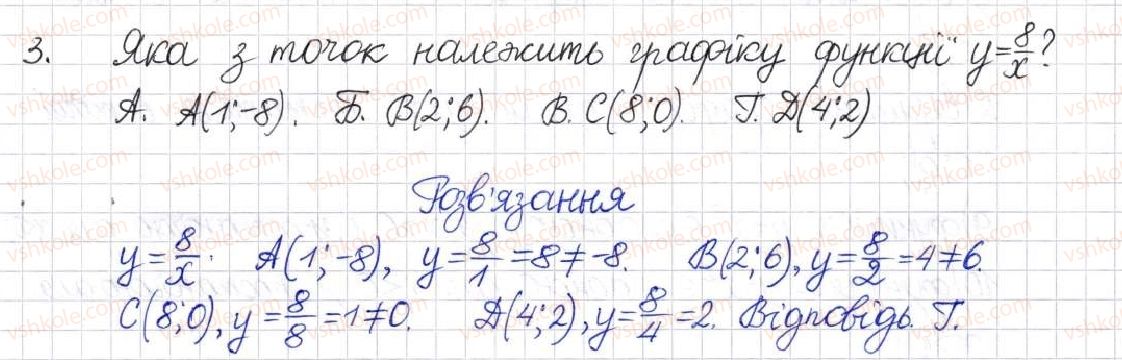 3. Яка з точок належить графіку функції y=8/x?
А. A(1;-8). Б. B(2;6). В. C(8;0). Г. Д(4;2)
Розв'язання
y=8/x. A(1;-8), y=8/1=8≠-8. B(2;6), y=8/2=4≠6.
C(8;0), y=8/8=1≠0. Д(4;2), y=8/4=2. Відповідь. Г.
vshkole.com